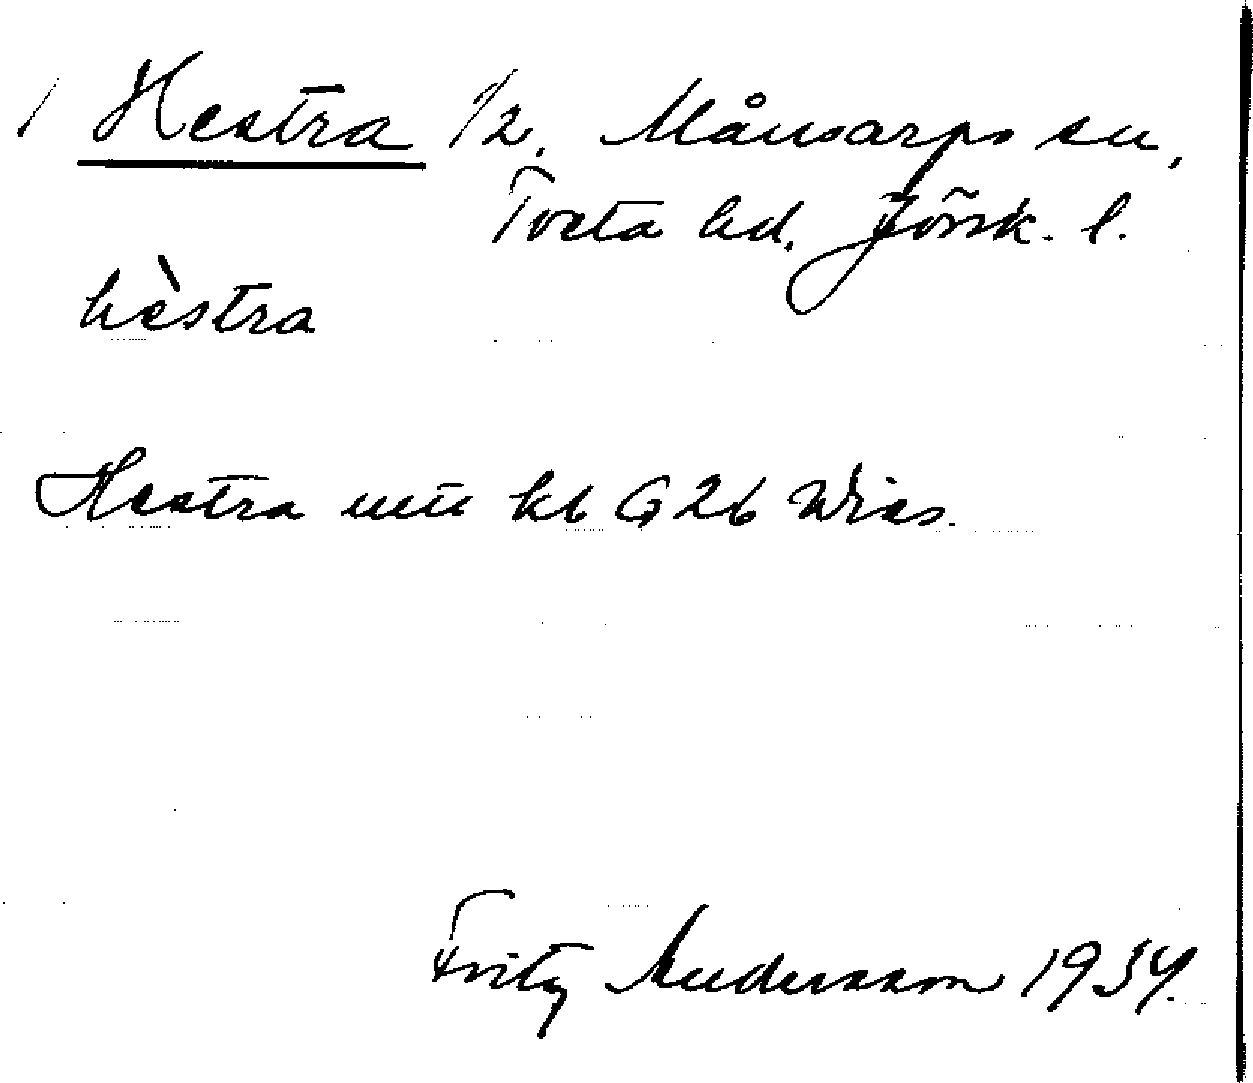 / Hestra 1/2. Månsarps sn,
Tveta hd. Jönk. l.
hèstra
Hestra kb G26
Fritz Andersson 1934.